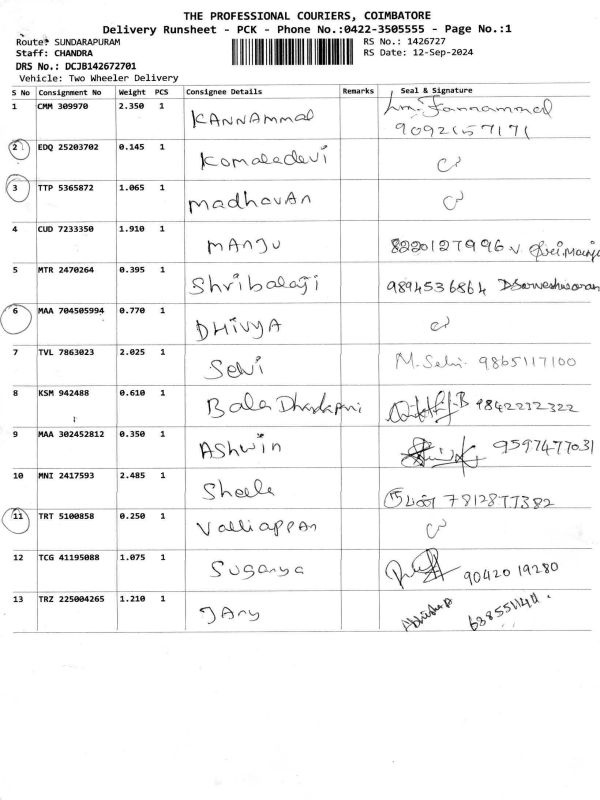 THE PROFESSIONAL COURIERS, COIMBATORE
Delivery Runsheet - PCK - Phone No.:0422-3505555 - Page No.:1
Route: SUNDARAPURAM RS No.: 1426727
Staff: CHANDRA RS Date: 12-Sep-2024
DRS No.: DCJB142672701
Vehicle: Two Wheeler Delivery
S No Consignment No Weight PCS Consignee Details Remarks Seal & Signature
1 CMM 309970 2.350 1 KANNAMMAL
9092657171
2 EDQ 25203702 0.145 1 Komaladevi
3 TTP 5365872 1.065 1 MadhavAn
4 CUD 7233350 1.910 1 MANJU 8220127996
5 MTR 2470264 0.395 1 Shribalaji 9894536864 D.Sarveshwaran
6 MAA 704505994 0.770 1 DHIVYA
7 TVL 7863023 2.025 1 Selvi M. Selvi 9865117100
8 KSM 942488 0.610 1 Bala Dhandapani 9842232322
9 MAA 302452812 0.350 1 AShwin 9597477031
10 MNI 2417593 2.485 1 Sheela 7812877382
11 TRT 5100858 0.250 1 VAlliAPPAn
12 TCG 41195088 1.075 1 Suganya 90420 19280
13 TRZ 225004265 1.210 1 JAny